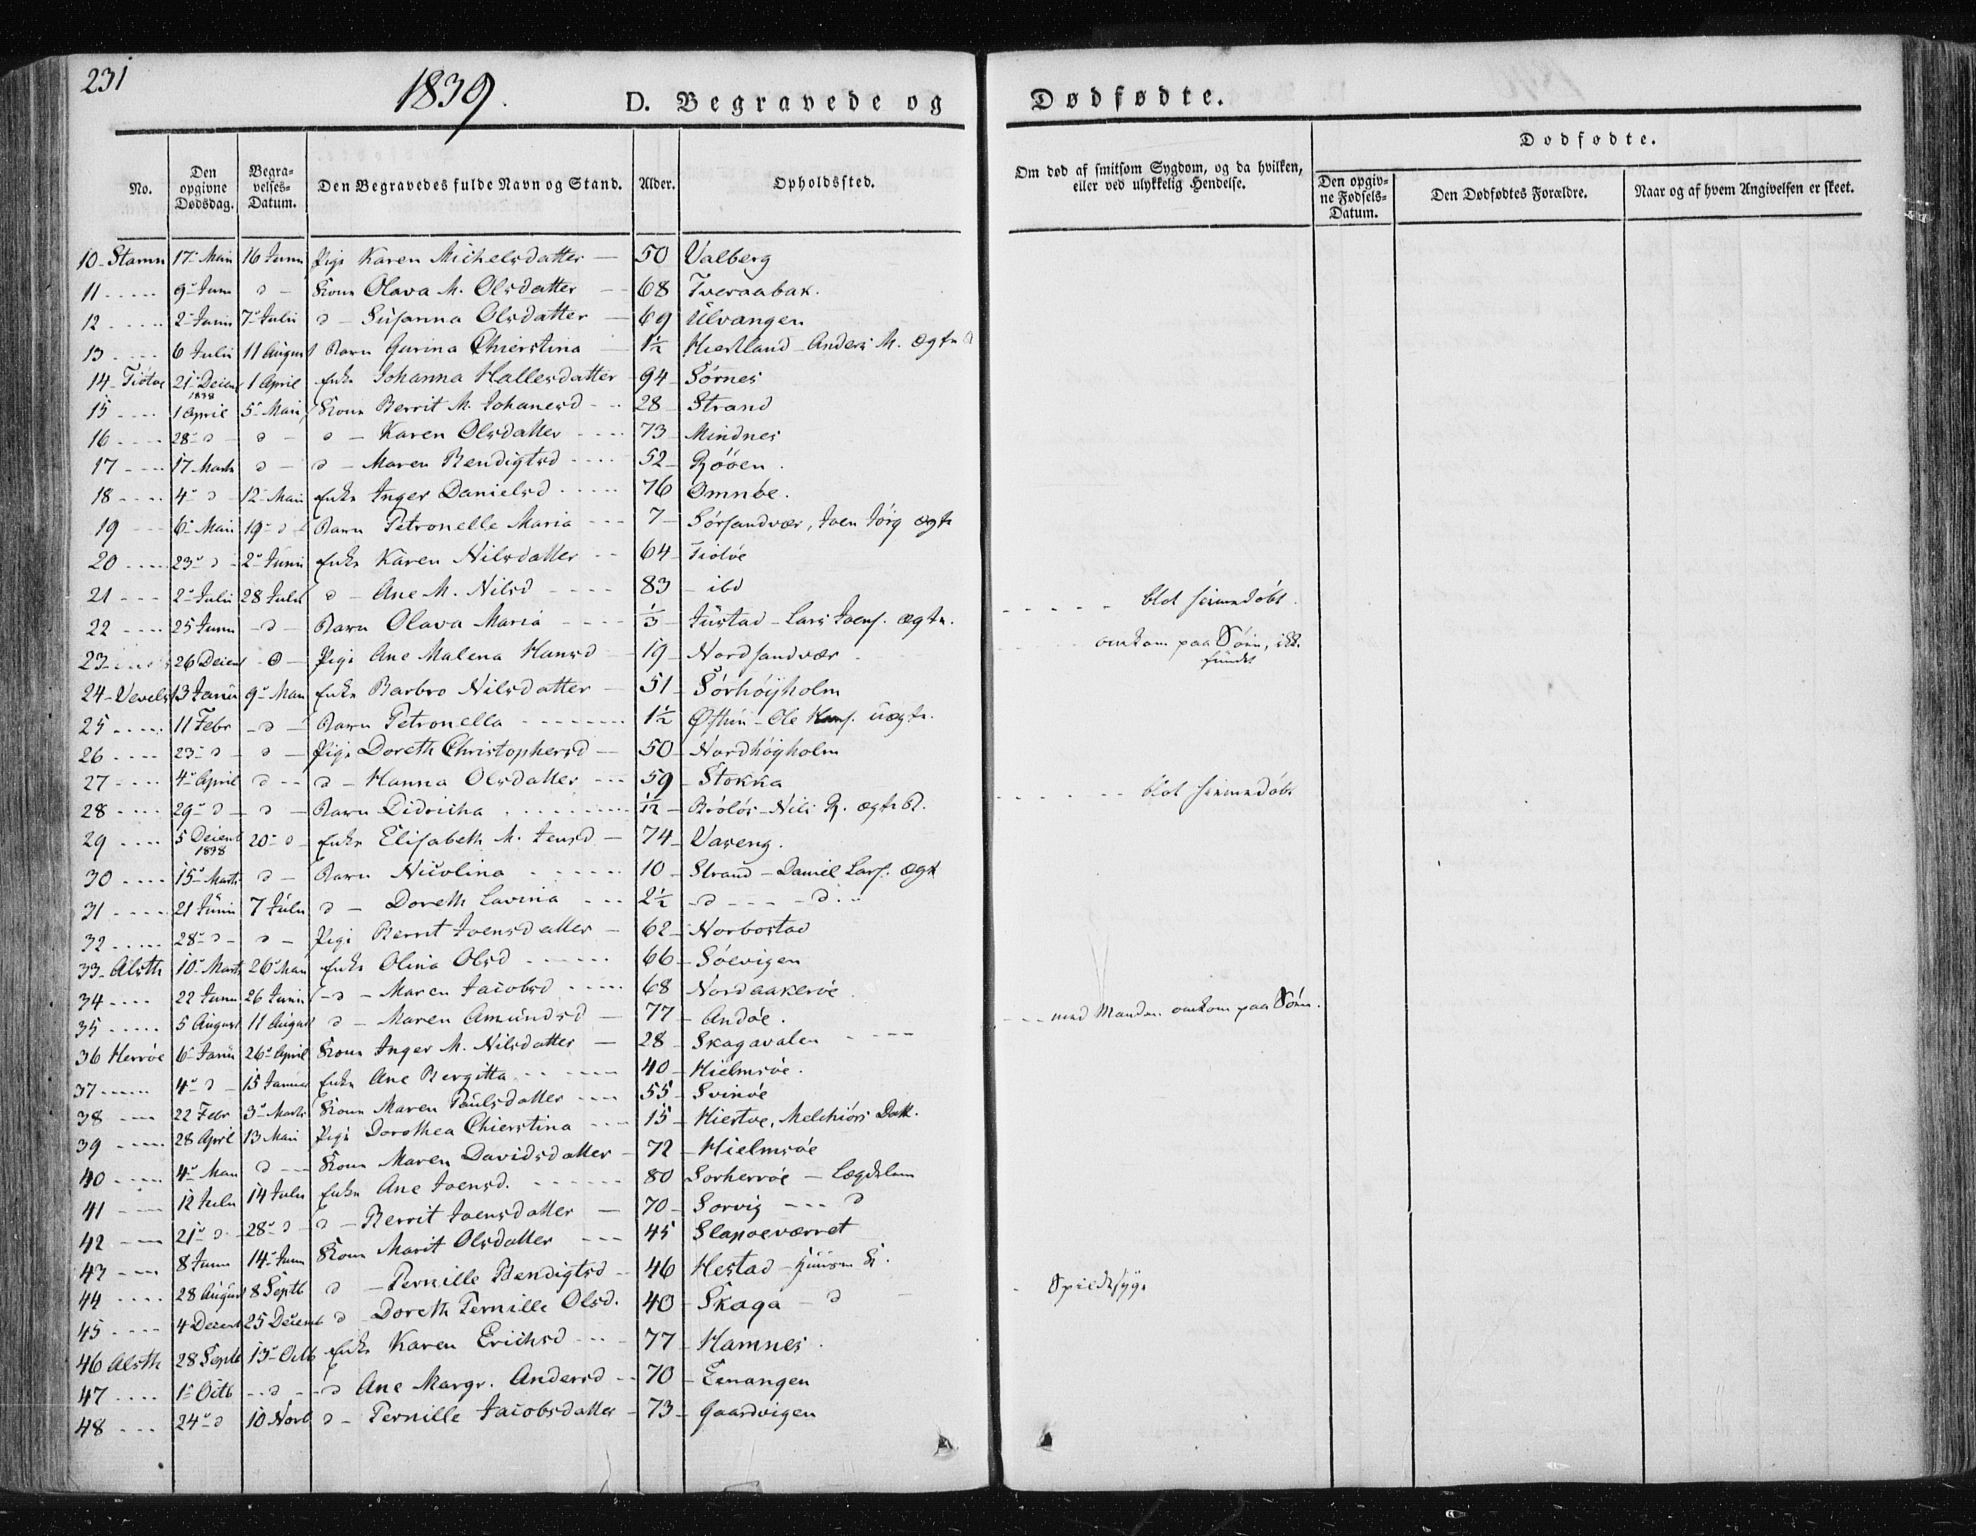 231
1839.
D. Begravede og Dødfødte.
Dødfødte.
No.
Den opgivne Dødsdag.
Begra-velses-Datum.
Den Begravedes fulde Navn og Stand.
Alder.
Opholdssted.
Om død af smitsom Sygdom, og da hvilken, eller ved ulykkelig Hendelse.
Den opgiv-ne Fødsels-Datum.
Den Dødfødtes Forældre.
Naar og af hvem Angivelsen er skeet.
10 - Stamn 17 Maii 16 Junii Pige Karen Michelsdatter — 50 Valberg
11 ..... 9 Junii d - Kone Olava M. Olsdatter — 68 Tveraabak.
12 .... 2 Junii 7 Julii d - Susanna Olsdatter — 69 Ulvangen
13 .... 6 Julii 11 August Barn Gurina Chierstina 1½ Hiertland - Anders M. Ægte D
14 - Tiötöe 21 Decem 1838 1 April Enke Johanna Hallesdatter 94 - Sörnes
15 .... 1 April 5 Maii Kone Berrit M. Johanesd - - 28 - Strand
16 .... 28 d - d - d - Karen Olsdatter .... 73 - Mindnes
17 .... 17 Marts d - d - Maren Bendigtsd .... 52 - Rööen.
18 .... 4 d - 12 Maii Enke Inger Danielsd ..... 76 Omnöe.
19 .... 6 Maii 19 d - Barn Petronelle Maria --- 7 - Sörsandvær, Joen Jörg Ægte
20 .... 23 d - 2 Junii Enke Karen Nilsdatter -- 64 - Tiötöe
21 --- 2 Julii 28 Julii d - Ane M. Nilsd ---- 83 - ibd
22 .... 25 Junii - d - Barn Olava Maria ---- 1/3 - Justad - Lars Joens. Ægte. ..... blot hiemmedöbt.
23 .... 26 Decem - d - Pige Ane Malena Hansd — 19 - Nordsandvær - omkom paa Söen, ikke fundet
24 - Vevels 13 Januar 9 Maii Enke Barbro Nilsdatter — 51 - Sörhöijholm
25 ..... 11 Febr - d - Barn Petronella ------- 1½ - - Ole Hans. uægte.
26 .... 23 d - d - Pige Doreth Christophersd — 50 - Nordhöijholm
27 .... 4 April d -- d - Hanna Olsdatter --- 59 - Stokka
28 .... 29 d - d - Barn Didricha ........ 1/12 - - Nils R. ægte B. ...... blot hiemmedöbt
29 .... 5 Decemb 1838 20 d - Enke Elisabeth M. Jensd — 74 - Vareng.
30 .... 15 Marts d - Barn Nicolina ------ 10 - Strand - Daniel Lars. Ægte
31 .... 21 Junii 7 Julii d - Doreth Lavina --- 2½ - d ---- d.
32 ..... 28 d - d - Pige Berrit Joensdatter - 62 - Norbostad
33 - Alsth 10 Marts 26 Maii Enke Olina Olsd ------ 66 - Söevigen
34 .... 22 Junii 26 Junii - d - Maren Jacobsd ..... 68 - Nordaakeröe
35 .... 5 August 11 August d - Maren Amundsd — 77 - Andöe.
36 Herröe 6 Januar 26 April Kone Inger M. Nilsdatter — 28 - Skagavalen ---- med Manden omkom paa Söen.
37 ...... 4 d - 15 Januar Enke Ane Bergitta ...... 40 - Hielmsöe.
38 .... 22 Febr 3 Marts Kone Maren Paulsdatter --- 55 - Svinöe
39 ..... 28 April 13 Maii Pige Dorothea Chierstina --- 15 - , Melchiors Datt.
40 ..... 4 Maii d -- Kone Maren Davidsdatter — 72 - Hielmsöe
41 .... 12 Julii 14 Julii Enke Ane Joensd. ------ 80 Sorherröe - Lægdslem
42 .... 21 d - 28 d - d - Berrit Joensdatter — 70 - Sorvig --- d
43 .... 8 Junii 14 Junii Kone Marit Olsdatter --- 45 Slapoeværret
44 .... 28 August 8 Septb d - Pernille Bendigtsd -- 46 Hestad - Huusm K. - Spedalsksyge
45 .... 4 Decemb 25 Decemb d - Doreth Pernille Olsd. 40 - Skaga - d
46 Alsth 28 Septb 13 Octb Enke Karen Erichsd --- 77 - Hamnes
47 .... 1 Octb -- d - - d Ane Margr. Andersd -- 70 - Eenangen
48 ... 24 d 10 Novb d - Pernille Jacobsdatter - 73 - Gaardvigen